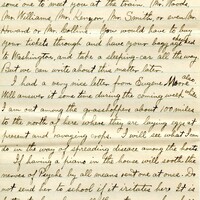 some one to meet you at the train. Mr. Rhode
Mr. Williams, Mr. Kenyon Mr. Smith, or even Mr.
Howard or Mr. Collins. You would have to buy
your tickets through and have your baggage
to Washington, and take a sleeping-car all the way.
But we can write about this matter later.
I had a very nice letter from Eugene also
Will answer it some time during the coming week
I am out among the grasshoppers about 100 miles
to the north at here where they are laying eggs at
present and ravaging crops. I will see what I can
do in the way of spreading disease among the hosts
If having a piano in the house will soothe the
nerves of people by all means rent one at once. Do
not send her to school if it irritates her. It is